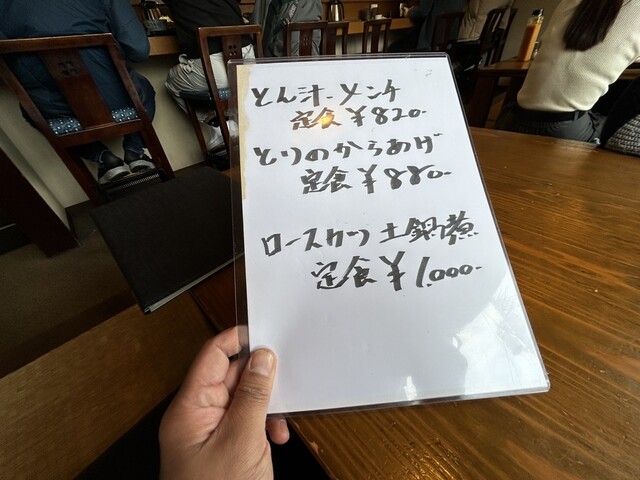 とん汁・メンチ
定食 ¥820-
とりのからあげ
定食 ¥880-
ロースカツ土鍋煮
定食 ¥1,000-